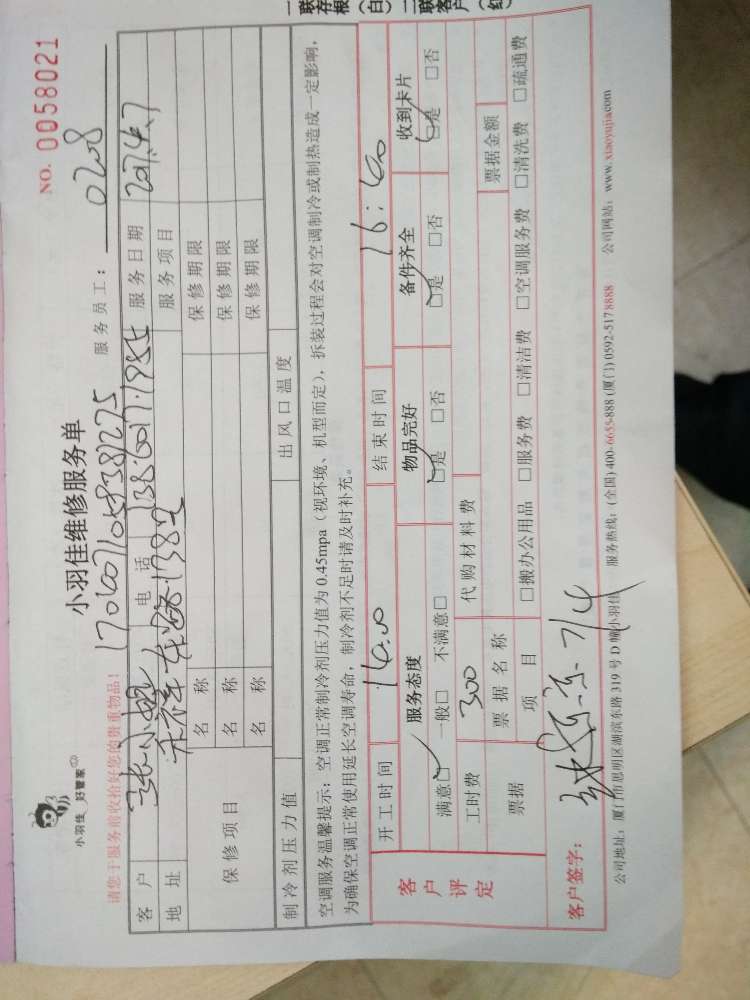 一联存根(白) 二联客户(红
小羽佳 好管家
小羽佳维修服务单
NO. 0058021
170407105838275
服务员工： 0208
请您于服务前收拾好您的贵重物品！
客户 张小姐 电话 138.6017.1955 服务日期 2017.4.7
地址 1382 服务项目
保修项目 名称 保修期限
名称 保修期限
名称 保修期限
制冷剂压力值 出风口温度
空调服务温馨提示：空调正常制冷剂压力值为 0.45mpa（视环境、机型而定），拆装过程会对空调制冷或制热造成一定影响，
为确保空调正常使用延长空调寿命，制冷剂不足时请及时补充。
开工时间 14.00 结束时间 16:00
客户评定
服务态度 物品完好 备件齐全 收到卡片
满意□ 一般□ 不满意□ □是 □否 □是 □否 □是 □否
工时费 300 代购材料费
票据 票据名称 票据金额
项目 □搬办公用品 □服务费 □清洁费 □空调服务费 □清洗费 □疏通费
客户签字： 7/4
公司地址：厦门市思明区湖滨东路 319 号 D 幢小羽佳 服务热线：(全国) 400-6655-888 (厦门) 0592-5178888 公司网站：www.xiaoyujia.com